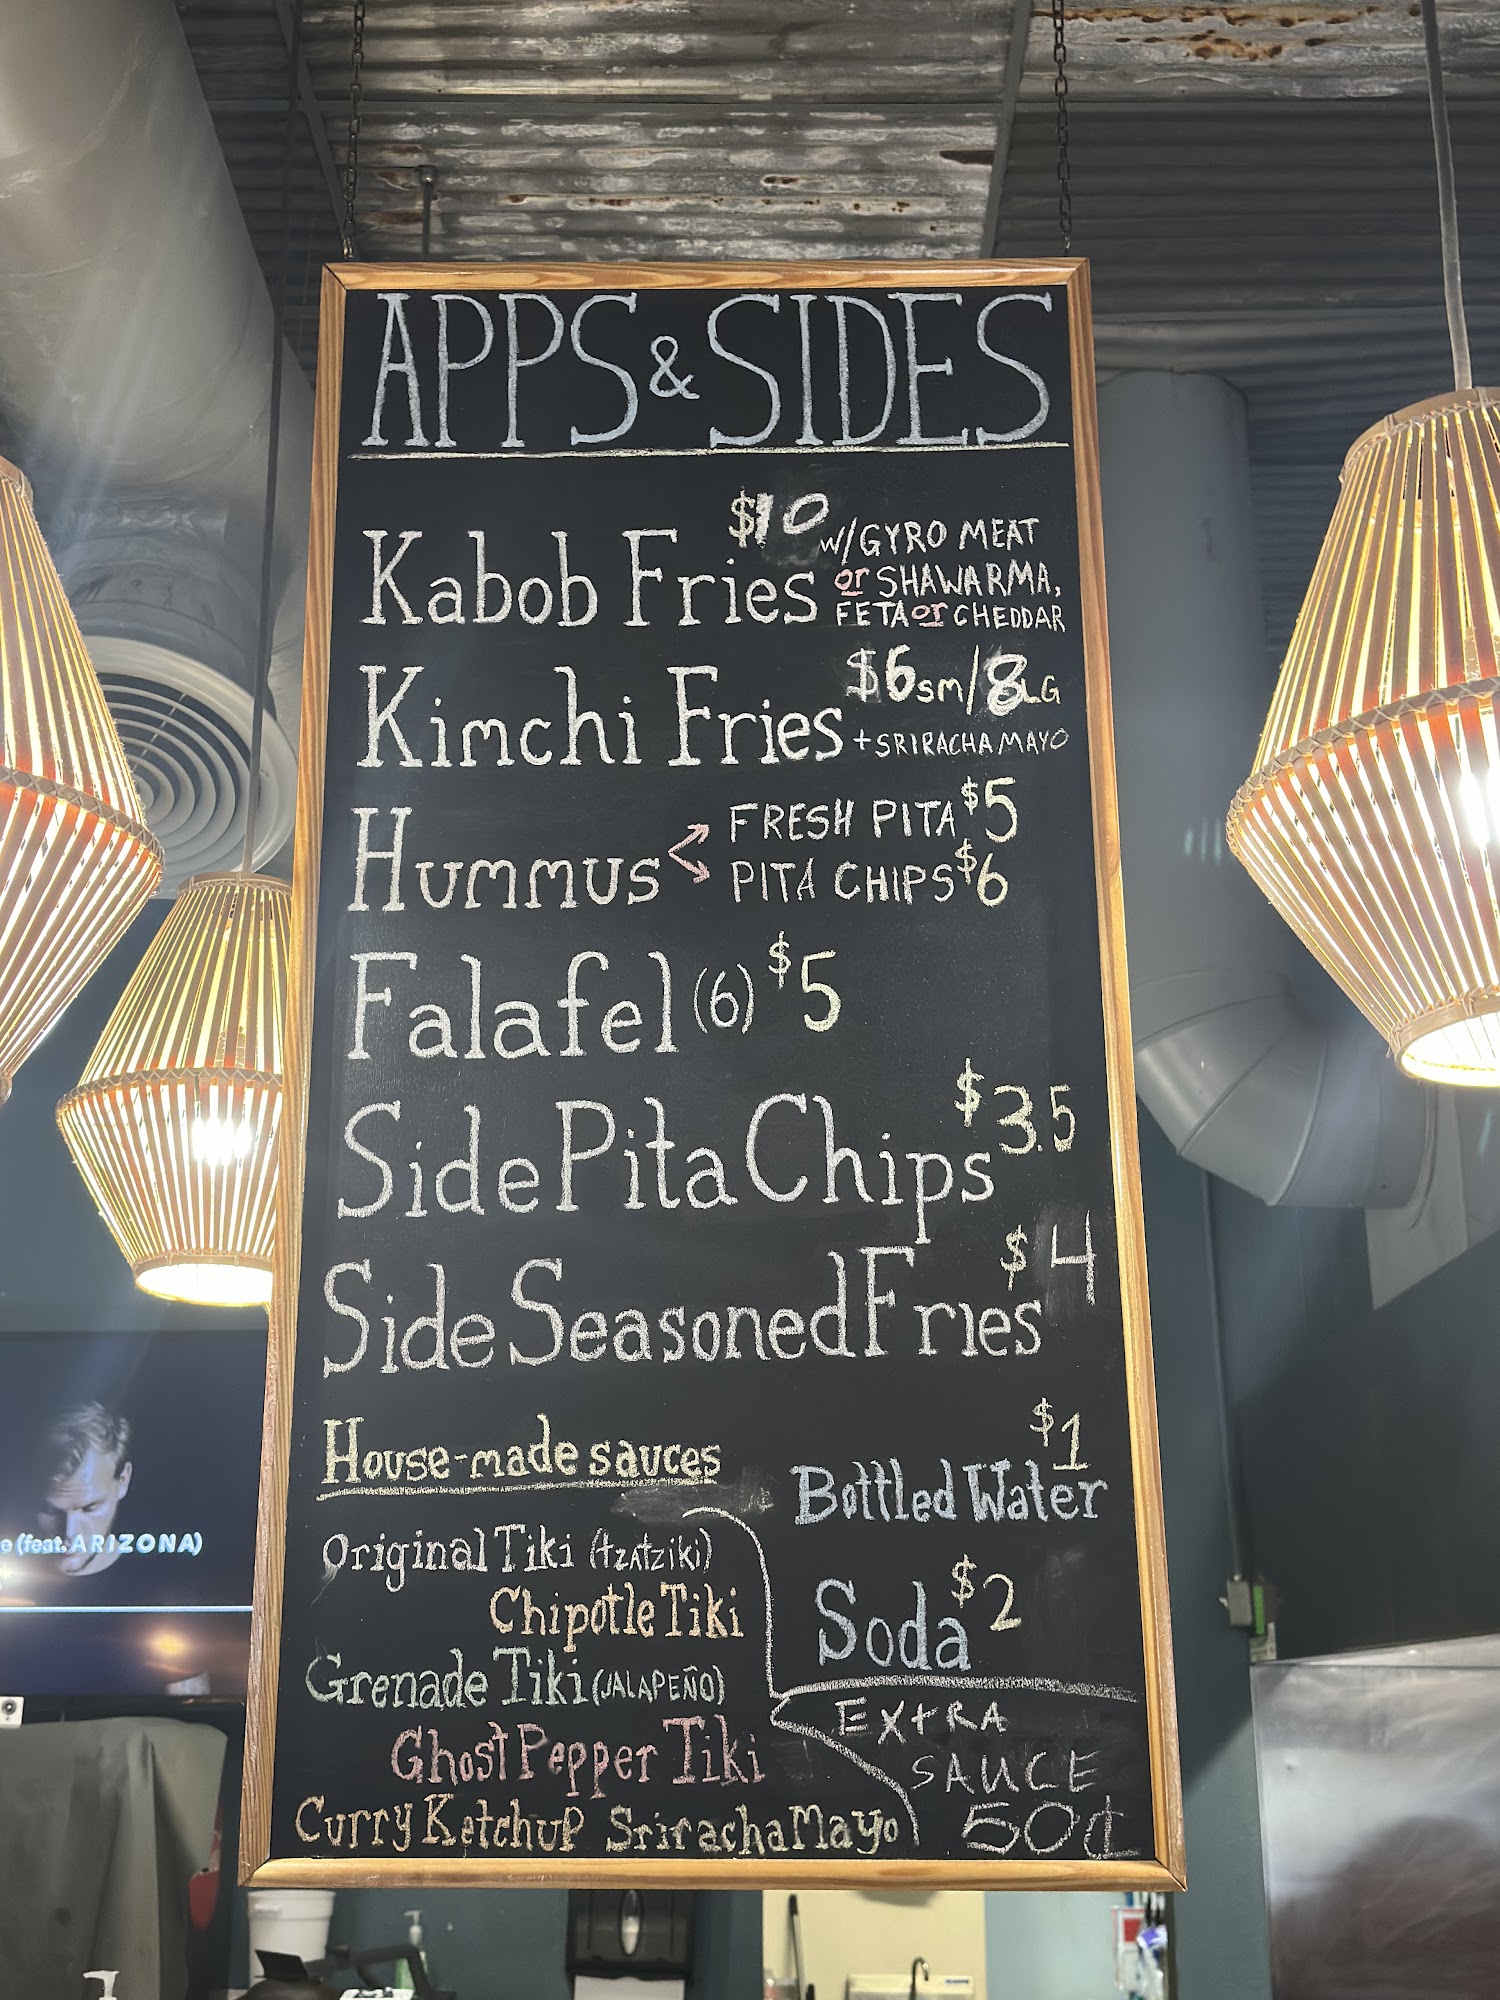 APPS & SIDES
Kabob Fries $10 w/GYRO MEAT
or SHAWARMA,
FETA or CHEDDAR
Kimchi Fries $6 sm/8LG
+SRIRACHA MAYO
Hummus < FRESH PITA $5
PITA CHIPS $6
Falafel (6) $5
Side Pita Chips $3.5
Side Seasoned Fries $4
House-made sauces
Original Tiki (tzatziki)
Chipotle Tiki
Grenade Tiki (JALAPEÑO)
Ghost Pepper Tiki
Curry Ketchup Sriracha Mayo
Bottled Water $1
Soda $2
EXTRA
SAUCE
50¢
e (feat. ARIZONA)